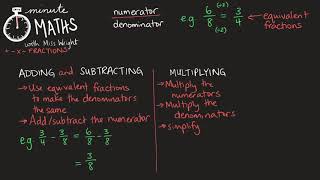 minute
MATHS
with Miss Wright
+ - x ÷ FRACTIONS
numerator
denominator
e.g. 6/8 (÷2) (÷2) = 3/4 equivalent fractions
ADDING and SUBTRACTING
→ Use equivalent fractions
to make the denominators
the same
→ Add/subtract the numerator
e.g. 3/4 - 3/8 = 6/8 - 3/8
= 3/8
MULTIPLYING
→ Multiply the
numerators
→ Multiply the
denominators
→ simplify